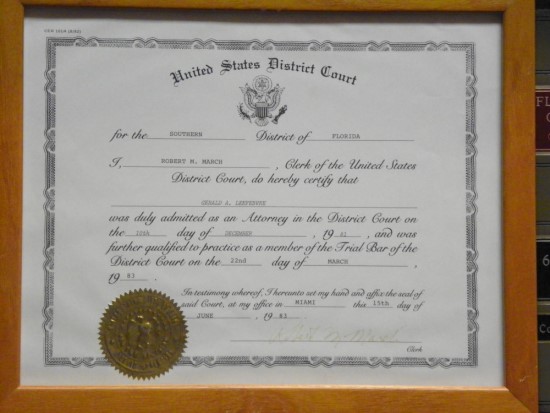 United States District Court
for the SOUTHERN District of FLORIDA
I, ROBERT M. MARCH , Clerk of the United States
District Court, do hereby certify that
GERALD A.
was duly admitted as an Attorney in the District Court on
the day of DECEMBER , 19 81 , and was
further qualified to practice as a member of the Trial Bar of the
District Court on the 22nd day of MARCH ,
19 83 .
In testimony whereof, I hereunto set my hand and affix the seal of
said Court, at my office in MIAMI this 15th day of
JUNE , 19 83 .
Clerk